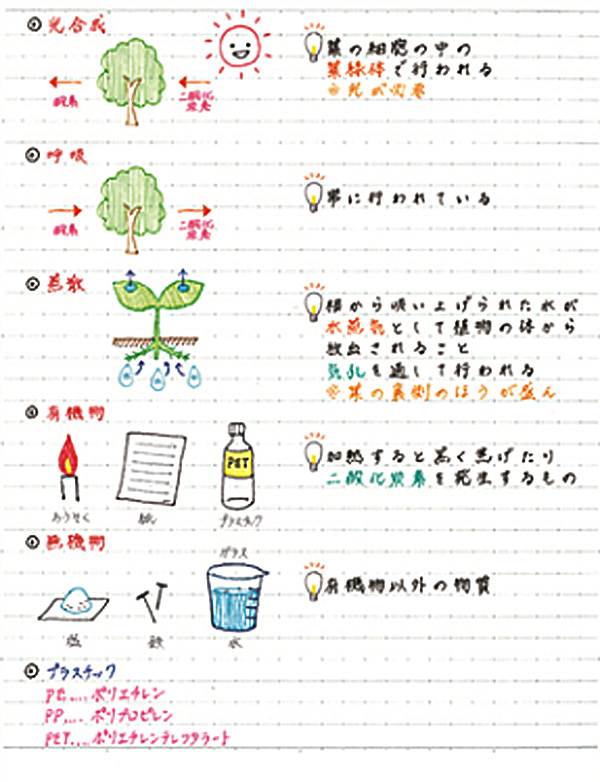 光合成
酸素
二酸化
炭素
葉の細胞の中の
葉緑体で行われる
※光が必要
呼吸
酸素
二酸化
炭素
常に行われている
蒸散
根から吸い上げられた水が
水蒸気として植物の体から
放出されること
気孔を通して行われる
※葉の裏側のほうが盛ん
有機物
PET
ろうそく
紙
プラスチック
加熱すると黒く焦げたり
二酸化炭素を発生するもの
無機物
ガラス
塩
鉄
水
有機物以外の物質
プラスチック
PE....ポリエチレン
PP....ポリプロピレン
PET....ポリエチレンテレフタラート